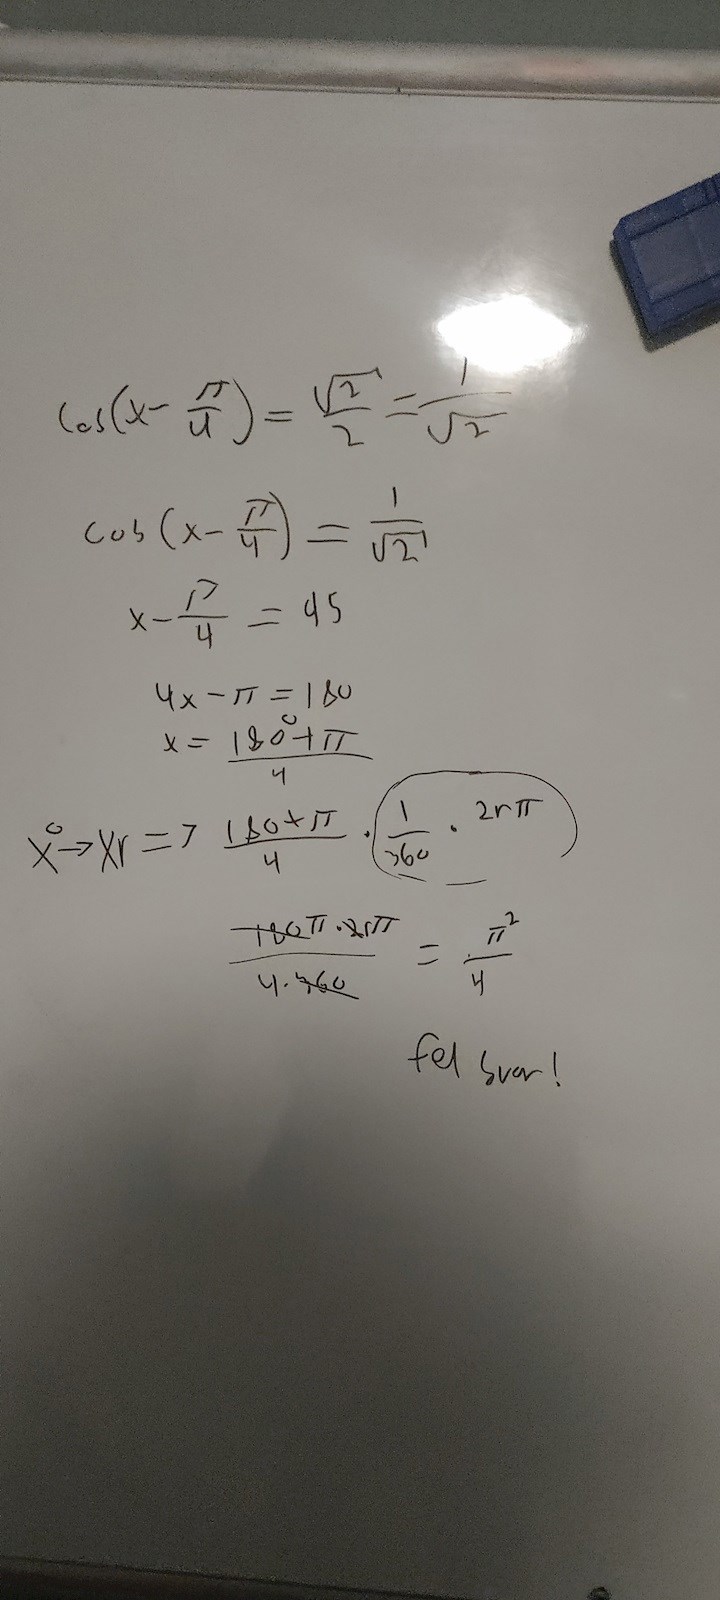 cos(x - π/4) = √2/2 = 1/√2
cos(x - π/4) = 1/√2
x - π/4 = 45
4x - π = 180
x = (180° + π)/4
x° → xr => (180 + π)/4 · 1/360 · 2rπ
(180π · 2rπ)/(4 · 360) = π²/4
fel svar!